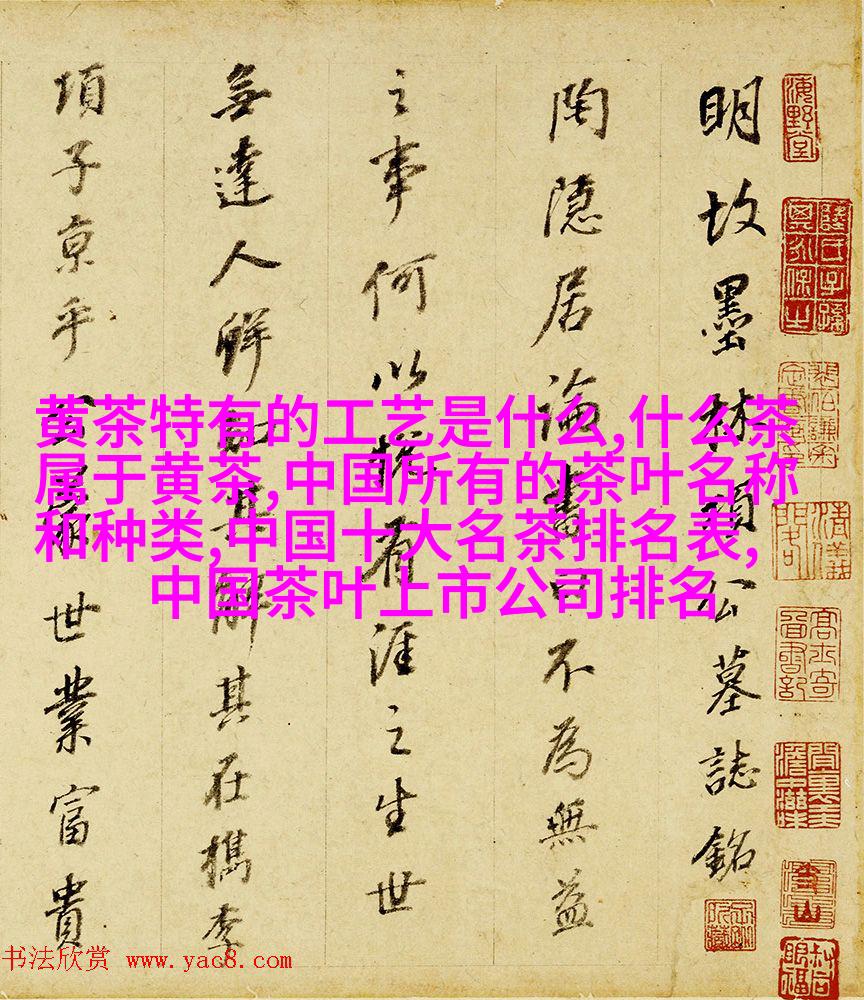 明故墨林項公墓誌銘
陶隱居論書曰不為無益
之事何以有涯之生世
無達人鮮知其解其在檇李
項子京乎公世業富貴
海野堂
黄茶特有的工艺是什么,什么茶
属于黄茶,中国所有的茶叶名称
和种类,中国十大名茶排名表,
中国茶叶上市公司排名
书法欣赏 www.yac8.com